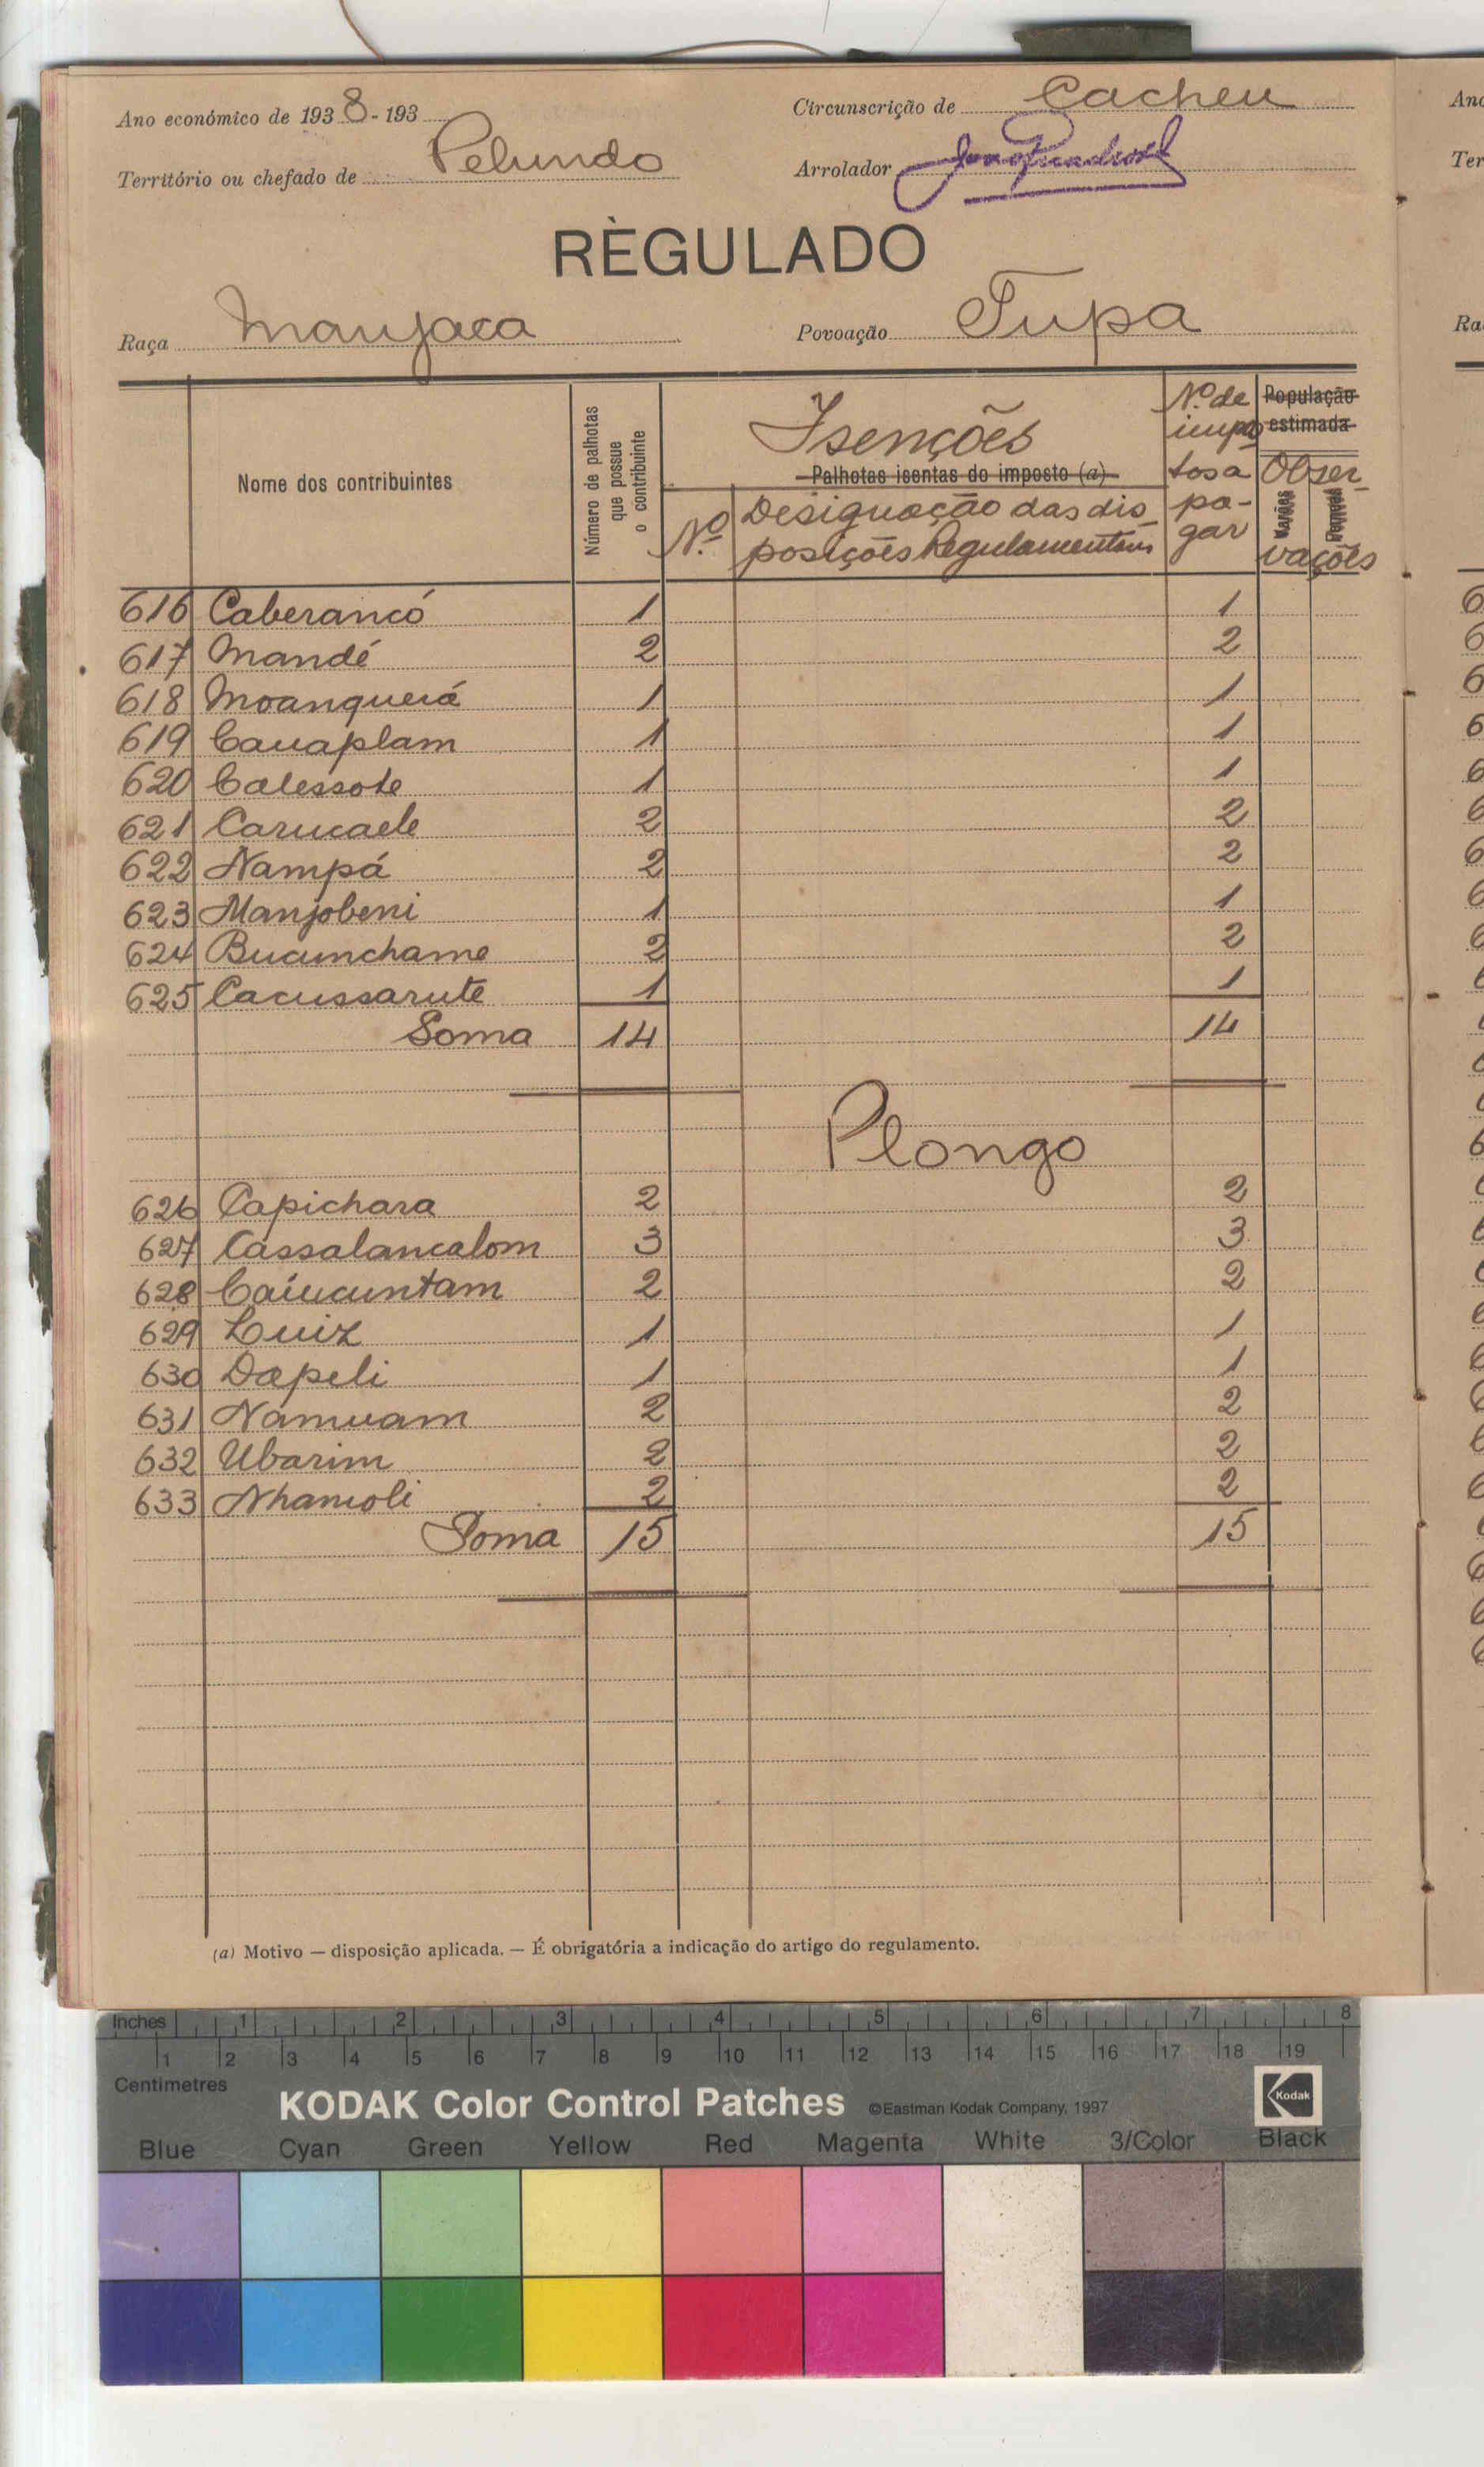 Ano económico de 1938-193
Circunscrição de Cacheu
Território ou chefado de Pelundo
Arrolador
RÈGULADO
Raça Manjaca
Povoação Tupa
Nome dos contribuintes
Número de palhotas que possue o contribuinte
Isenções
Palhotas isentas do imposto (a)
Nº
Designação das disposições Regulamentares
Nº. de impostos a pagar
População estimada
Observações
616 Caberancó 1 1
617 Mandé 2 2
618 Moanguerá 1 1
619 Cauaplam 1 1
620 Calessote 1 1
621 Carucaele 2 2
622 Nampá 2 2
623 Manjobeni 1 1
624 Bucunchame 2 2
625 Cacussarute 1 1
Soma 14 14
Plongo
626 Capichara 2 2
627 Cassalancalom 3 3
628 Caíucuntam 2 2
629 Luiz 1 1
630 Dapeli 1 1
631 Namuam 2 2
632 Ubarim 2 2
633 Nhamoli 2 2
Soma 15 15
(a) Motivo — disposição aplicada. — É obrigatória a indicação do artigo do regulamento.
Inches 1 2 3 4 5 6 7 8
1 2 3 4 5 6 7 8 9 10 11 12 13 14 15 16 17 18 19
Centimetres
KODAK Color Control Patches ©Eastman Kodak Company, 1997 Kodak
Blue Cyan Green Yellow Red Magenta White 3/Color Black